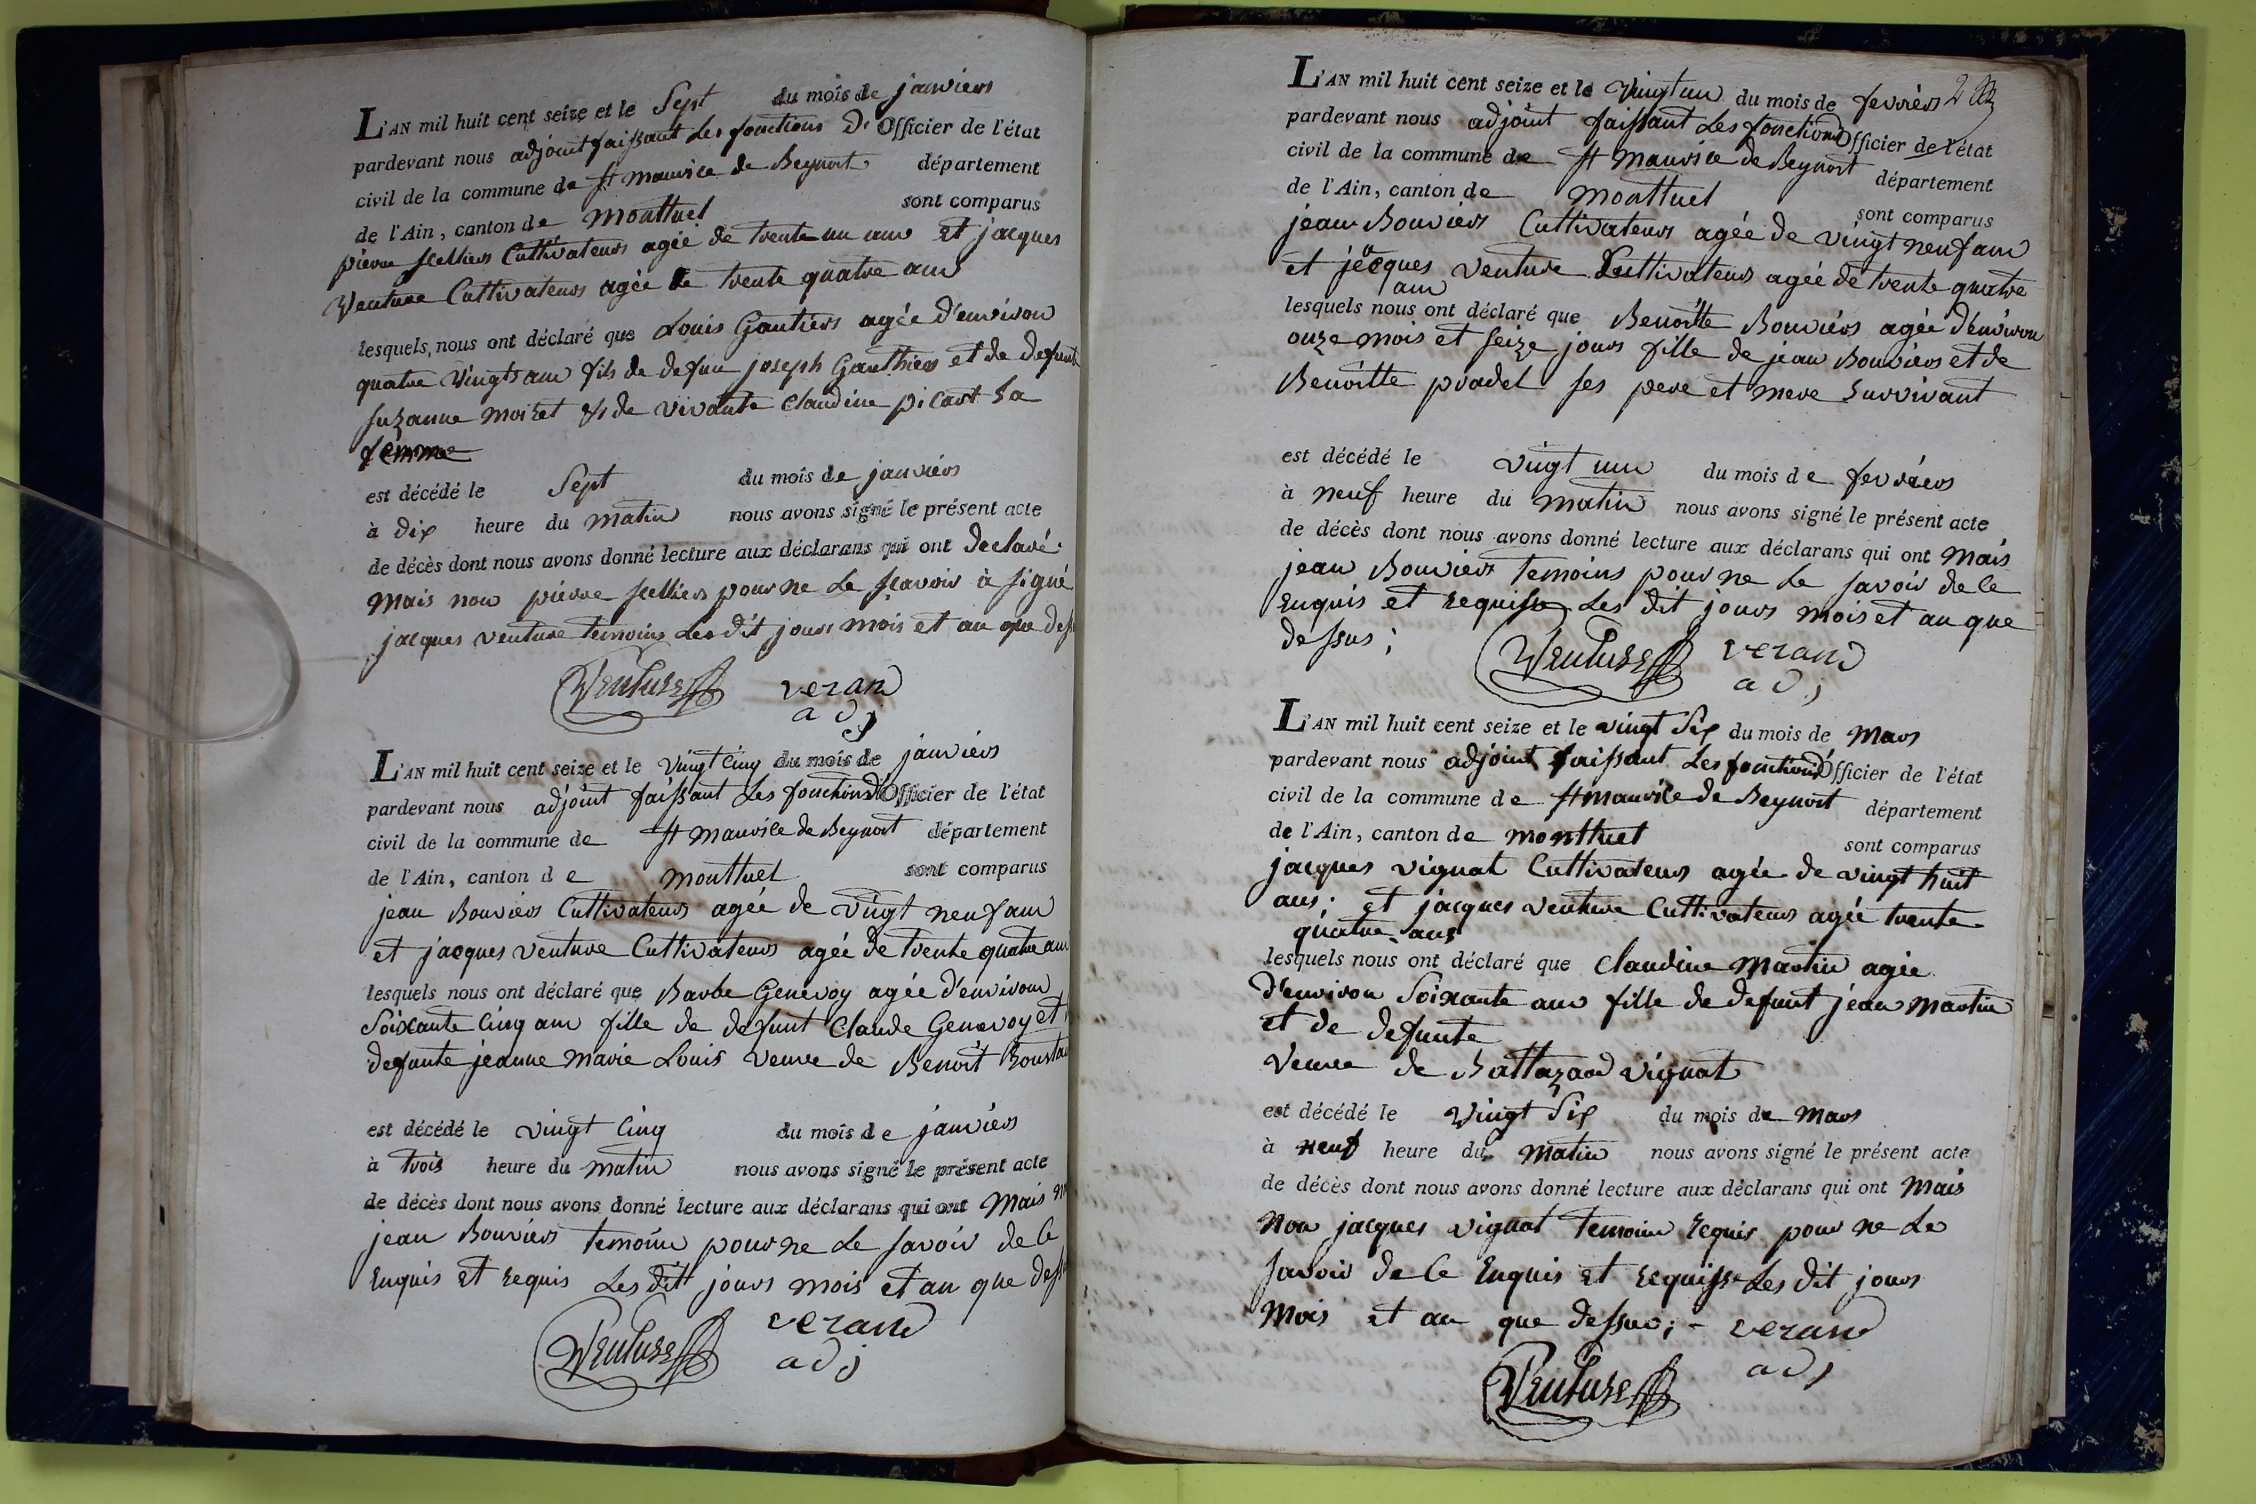 L'AN mil huit cent seize et le Sept du mois de janviers
pardevant nous adjoint faissant les fonctions D' Officier de l'état
civil de la commune de St maurice de Beynost département
de l'Ain, canton de Monttuel sont comparus
pierre scelliers Cultivateurs agée de trente un ans et jacques
Venture Cultivateurs agée de trente quatre ans
lesquels nous ont déclaré que Louis Gautiers agée d'environ
quatre vingts ans fils de defun joseph Gauthiers et de defunte
suzanne Moiret & de vivante Claudine picart Sa
femme
est décédé le Sept du mois de janviers
à dix heure du matin nous avons signé le présent acte
de décès dont nous avons donné lecture aux déclarans qui ont declaré
Mais non pierre scelliers pour ne le scavoir à signé
jacques venture temoins Les dit jours mois et an que dess
Venture verand
adj
L'AN mil huit cent seize et le Vingt cinq du mois de janviers
pardevant nous adjoint faissant Les fonctions d'Officier de l'état
civil de la commune de St Maurice de Beynost département
de l'Ain, canton de monttuel sont comparus
jean Bouviers Cultivateurs agée de vingt neuf ans
et jacques venture Cultivateurs agée de trente quatre ans
lesquels nous ont déclaré que Barbe Genevoy agée d'environ
Soixante cinq ans fille de defunt Claude Genevoy et
defunte jeanne Marie Louis veuve de Benoît
est décédé le vingt cinq du mois de janviers
à trois heure du matin nous avons signé le présent acte
de décès dont nous avons donné lecture aux déclarans qui ont Mais
jean Bouviers temoins pour ne le savoir de ce
Enquis et requis Les dit jours mois et an que dess
Venture verand
adj
L'AN mil huit cent seize et le Vingt un du mois de fevriers 2
pardevant nous adjoint faissant Les fonctions Officier de l'état
civil de la commune de St Maurice de Beynost département
de l'Ain, canton de Monttuel sont comparus
jean Bouviers Cultivateurs agée de vingt neuf ans
et jacques venture Cultivateurs agée de trente quatre
ans
lesquels nous ont déclaré que Benoitte Bouviers agée d'environ
onze mois et seize jours fille de jean Bouviers et de
Benoitte pradel ses pere et mere survivant
est décédé le vingt un du mois de fevriers
à neuf heure du matin nous avons signé le présent acte
de décès dont nous avons donné lecture aux déclarans qui ont Mais
jean Bouviers temoins pour ne le savoir de ce
Enquis et requisse Les dit jours mois et an que
dessus ;
Venture verand
adj
L'AN mil huit cent seize et le vingt six du mois de Mars
pardevant nous adjoint faissant Les fonctions d'Officier de l'état
civil de la commune de St maurice de Beynost département
de l'Ain, canton de monttuel sont comparus
jacques vignat Cultivateurs agée de vingt huit
ans ; et jacques venture Cultivateurs agée trente
quatre ans
lesquels nous ont déclaré que Claudine Martin agée
d'environ Soixante ans fille de defunt jean Martin
et de defunte
Veuve de Battazard Vignat
est décédé le Vingt six du mois de Mars
à neuf heure du Matin nous avons signé le présent acte
de décès dont nous avons donné lecture aux déclarans qui ont Mais
Non jacques vignat temoins requis pour ne le
savoir de ce Enquis et requisse Les dit jours
Mois et an que dessus ; - verand
adj
Venture